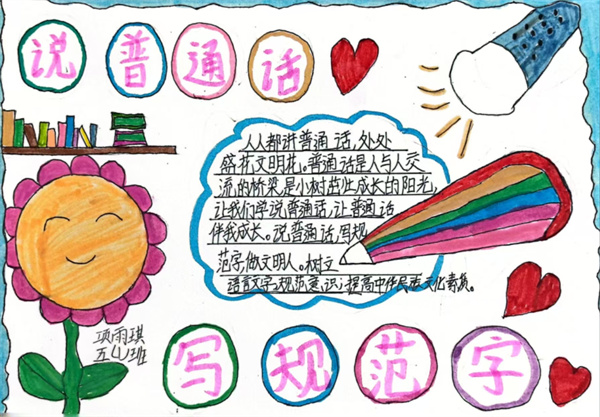 说普通话
人人都讲普通话,处处
盛花文明花。普通话是人与人交
流的桥梁,是小树茁壮成长的阳光,
让我们学说普通话,让普通话
伴我成长。说普通话,写规
范字,做文明人。树立
语言文字规范意识,提高中华民族文化素质。
项雨琪
五(4)班
写规范字